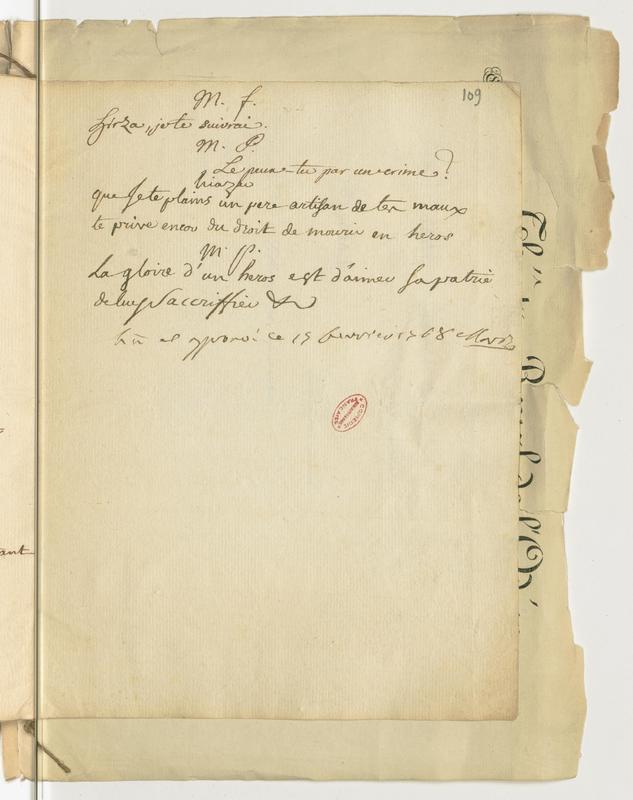 109
M. f.
hirza, je te suivrai.
M. P.
Le peux-tu par un crime?
hiazar
que Je te plains un pere artisan de tes maux
te prive encor du droit de mourir en heros
M. P.
La gloire d'un heros est d'aimer sa patrie
de luy Saccriffier &
lu et approuvé ce 15 fevrier 1768
COMEDIE FRANÇAISE
ant